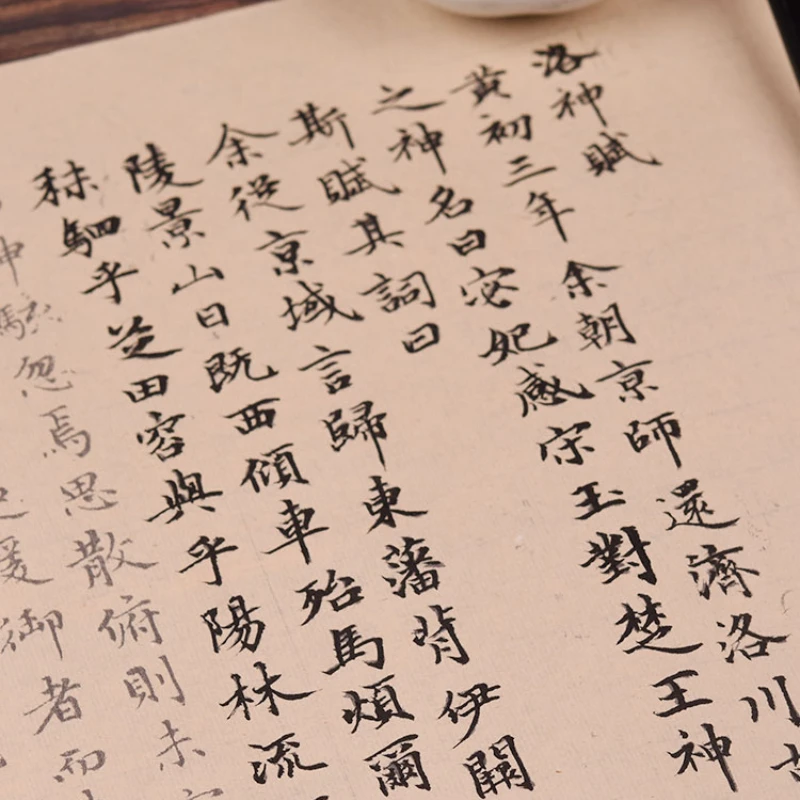 洛神賦
黃初三年余朝京師還濟洛川古
之神名曰宓妃感宋玉對楚王神
斯賦其詞曰
余從京域言歸東藩背伊闕
陵景山日既西傾車殆馬煩爾
秣駟乎芝田容與乎陽林流
神駭忽焉思散俯則未
御者而